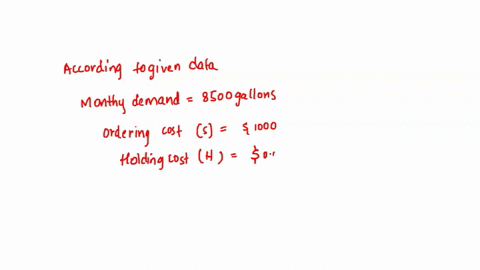 According to given data
Monthy demand = 8500 gallons
Ordering cost (S) = $1000
Holding cost (H) = $0.